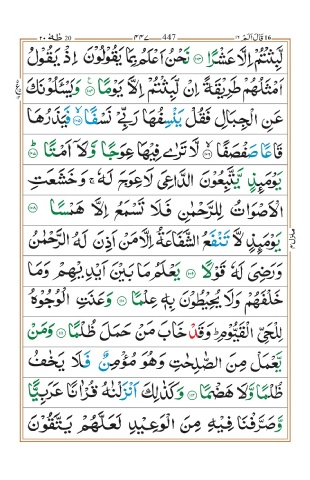 طٰهٰ ٢٠ 20 ٤٤٧ 447 قَالَ اَلَمْ ١٦ 16
لَّبِثْتُمْ اِلَّا عَشْرًا ۝١٠٣ نَحْنُ اَعْلَمُ بِمَا يَقُوْلُوْنَ اِذْ يَقُوْلُ
اَمْثَلُهُمْ طَرِيْقَةً اِنْ لَّبِثْتُمْ اِلَّا يَوْمًا ۝١٠٤ وَيَسْـَٔلُوْنَكَ
عَنِ الْجِبَالِ فَقُلْ يَنْسِفُهَا رَبِّيْ نَسْفًا ۝١٠٥ فَيَذَرُهَا
قَاعًا صَفْصَفًا ۝١٠٦ لَّا تَرٰى فِيْهَا عِوَجًا وَّلَآ اَمْتًا ۝١٠٧
يَوْمَئِذٍ يَّتَّبِعُوْنَ الدَّاعِيَ لَا عِوَجَ لَهٗ ۚ وَخَشَعَتِ
الْاَصْوَاتُ لِلرَّحْمٰنِ فَلَا تَسْمَعُ اِلَّا هَمْسًا ۝١٠٨
يَوْمَئِذٍ لَّا تَنْفَعُ الشَّفَاعَةُ اِلَّا مَنْ اَذِنَ لَهُ الرَّحْمٰنُ
وَرَضِيَ لَهٗ قَوْلًا ۝١٠٩ يَعْلَمُ مَا بَيْنَ اَيْدِيْهِمْ وَمَا
خَلْفَهُمْ وَلَا يُحِيْطُوْنَ بِهٖ عِلْمًا ۝١١٠ وَعَنَتِ الْوُجُوْهُ
لِلْحَيِّ الْقَيُّوْمِ ؕ وَقَدْ خَابَ مَنْ حَمَلَ ظُلْمًا ۝١١١ وَمَنْ
يَّعْمَلْ مِنَ الصّٰلِحٰتِ وَهُوَ مُؤْمِنٌ فَلَا يَخٰفُ
ظُلْمًا وَّلَا هَضْمًا ۝١١٢ وَكَذٰلِكَ اَنْزَلْنٰهُ قُرْاٰنًا عَرَبِيًّا
وَّصَرَّفْنَا فِيْهِ مِنَ الْوَعِيْدِ لَعَلَّهُمْ يَتَّقُوْنَ